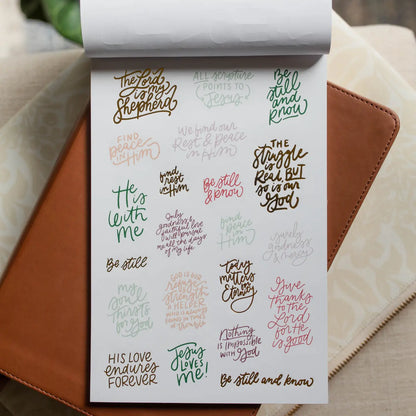 The Lord
is my
Shepherd
ALL Scripture
POINTS TO
Jesus
Be
still
and
know
FIND
peace
in Him
We find our
Rest & peace
in Him
THE
struggle
is
Real, BUT
so is our
God
find
rest
in Him
He is
with
me
Be still
& know
Only
goodness &
faithful love
will pursue
me all the days
of my life
find
peace
in Him
surely
goodness
& mercy
Be still
my
soul
thirsts
for God
GOD IS OUR
refuge &
strength
A HELPER
WHO IS ALWAYS
FOUND IN TIMES
of trouble
Today
matters
for
Eternity
Give
Thanks
to the
Lord
for He
is good
HIS LOVE
ENDURES
FOREVER
Jesus
LOVES
me!
Nothing
IS IMPOSSIBLE
WITH God
Be still and know